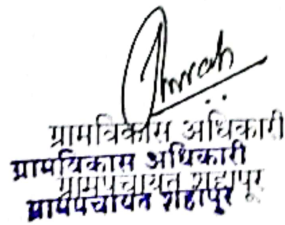 ग्रामविकास अधिकारी
ग्रामविकास अधिकारी
ग्रामपंचायत शहापूर
ग्रामपंचायत शहापुर